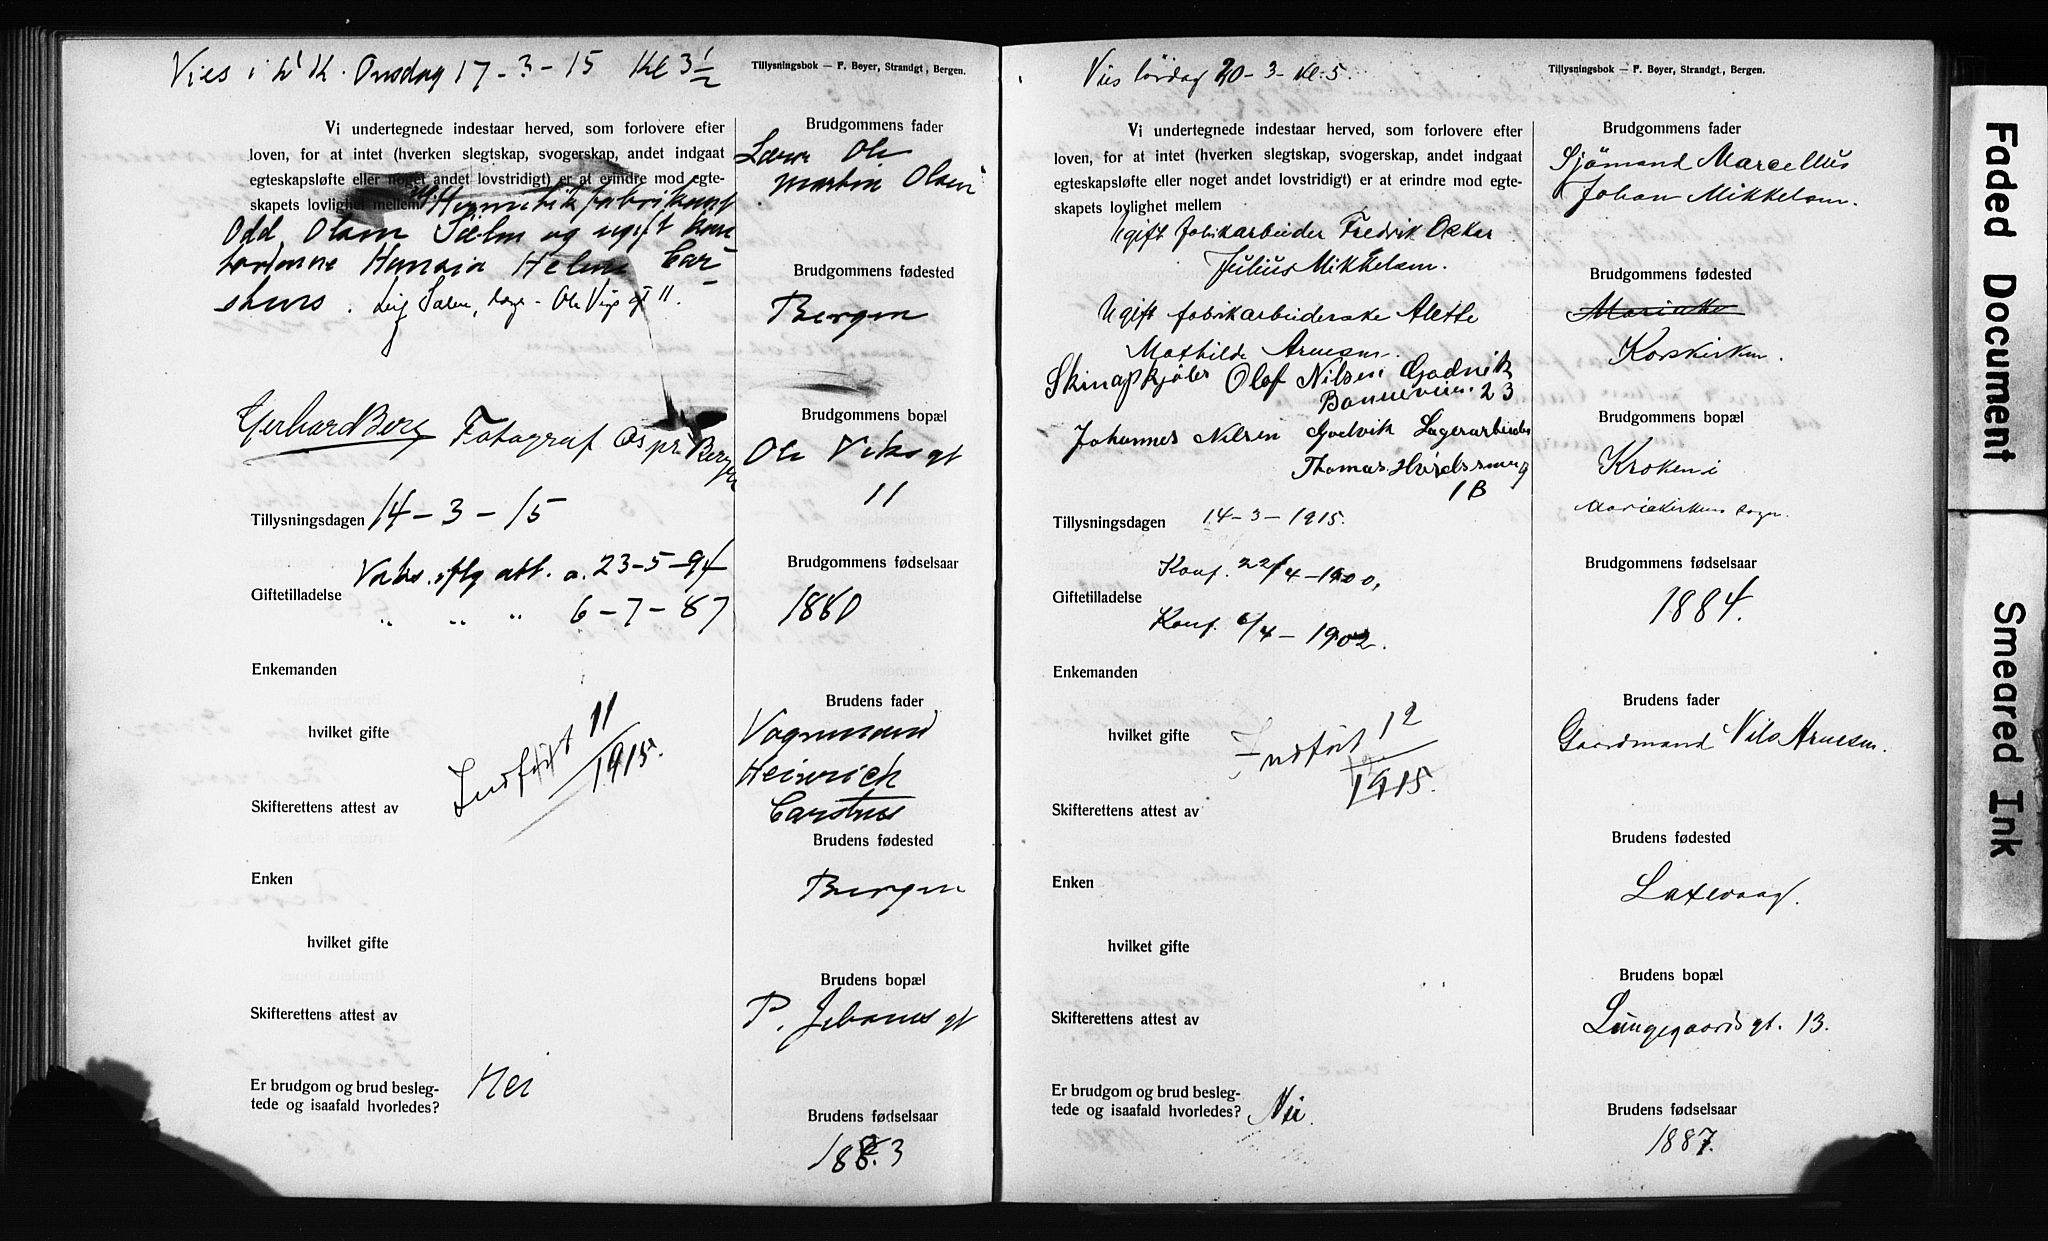 Vies i Onsdag 17-3-15 Kl 3½
Tillysningsbok — F. Beyer, Strandgt., Bergen.
Vi undertegnede indestaar herved, som forlovere efter
loven, for at intet (hverken slegtskap, svogerskap, andet indgaat
egteskapsløfte eller noget andet lovstridigt) er at erindre mod egte-
skapets lovlighet mellem Hermetikfabrikant
Odd Olsen Sælen og ugift Kon
Helene Car-
stens. Leif Sælen, Ole Vigs gt 11.
Gerhard Berg Fotograf Os pr. Bergen
Tillysningsdagen 14-3-15
Vaks. iflg att. a. 23-5-94
Giftetilladelse
" " " 6-7-87
Enkemanden
hvilket gifte
Indført 11/1915.
Skifterettens attest av
Enken
hvilket gifte
Skifterettens attest av
Er brudgom og brud besleg-
tede og isaafald hvorledes? Nei
Brudgommens fader
Lærer Ole
Martin Olsen
Brudgommens fødested
Bergen
Brudgommens bopæl
Ole Viks gt
11
Brudgommens fødselsaar
1880
Brudens fader
Vognmand
Heinrich
Carstens
Brudens fødested
Bergen
Brudens bopæl
P. Jebsens gt
Brudens fødselsaar
1883
Vies lørdag 20-3-kl. 5.
Tillysningsbok — F. Beyer, Strandgt., Bergen.
Vi undertegnede indestaar herved, som forlovere efter
loven, for at intet (hverken slegtskap, svogerskap, andet indgaat
egteskapsløfte eller noget andet lovstridigt) er at erindre mod egte-
skapets lovlighet mellem
Ugift fabrikarbeider Fredrik Oskar
Julius Mikkelsen.
Ugift fabrikarbeiderske Alette
Mathilde Arnesen.
Olaf Nilsen Godvik
23
Johannes Nilsen Godvik Lagerarbeider
Thomas
1 B
Tillysningsdagen 14-3-1915.
Konf. 22/4-1900,
Giftetilladelse
Konf. 6/4-1902.
Enkemanden
hvilket gifte
Indført 12/1915.
Skifterettens attest av
Enken
hvilket gifte
Skifterettens attest av
Er brudgom og brud besleg-
tede og isaafald hvorledes? Nei.
Brudgommens fader
Sjömand Marcellus
Johan Mikkelsen.
Brudgommens fødested
Korskirken.
Brudgommens bopæl
Kroken i
Mariakirkens sogn.
Brudgommens fødselsaar
1884.
Brudens fader
Gaardmand Nils Arnesen.
Brudens fødested
Laxevaag.
Brudens bopæl
Lungegaardsgt. 13.
Brudens fødselsaar
1887.
Faded Document
Smeared Ink